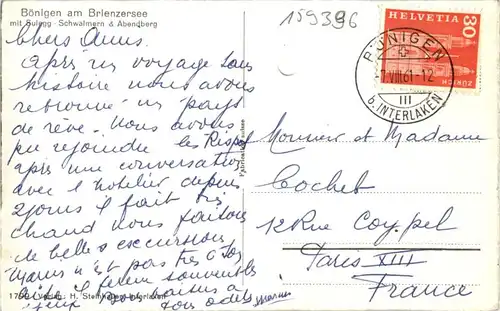 Bönigen am Brienzersee
mit Sulegg - Schwalmern & Abendberg
159396
HELVETIA
30
ZÜRICH
BÖNIGEN
VIII.61-12
b. INTERLAKEN
Chers Amis.
Après un voyage sans
histoire nous avons
retrouvé un pays
de rêve. Nous avons
pu rejoindre les
après une conversation
avec l'hôtelier depuis
2 jours il fait très
chaud nous faisons
de belles excursions
n'est pas très
Monsieur et Madame
Cochet
12 Rue Coypel
Paris XIII
France
Verlag: H. Interlaken